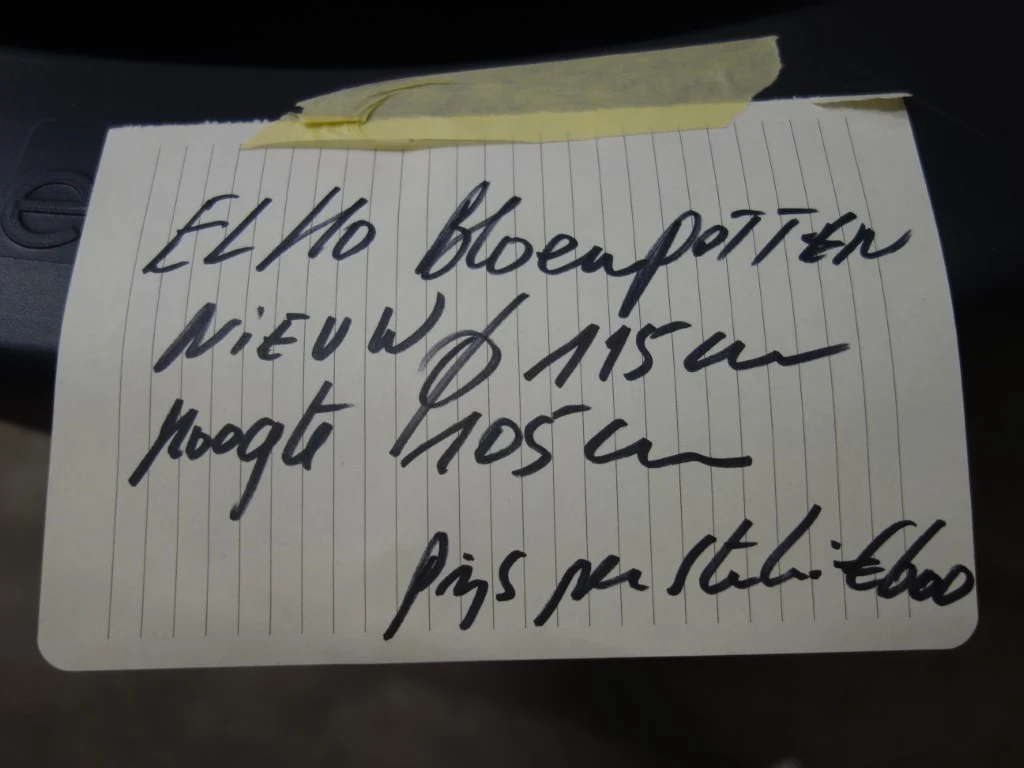 e
ELHO BloemPOTTEN
NiEUW Ø 115 cm
Hoogte 105 cm
Prijs per stuk: €600